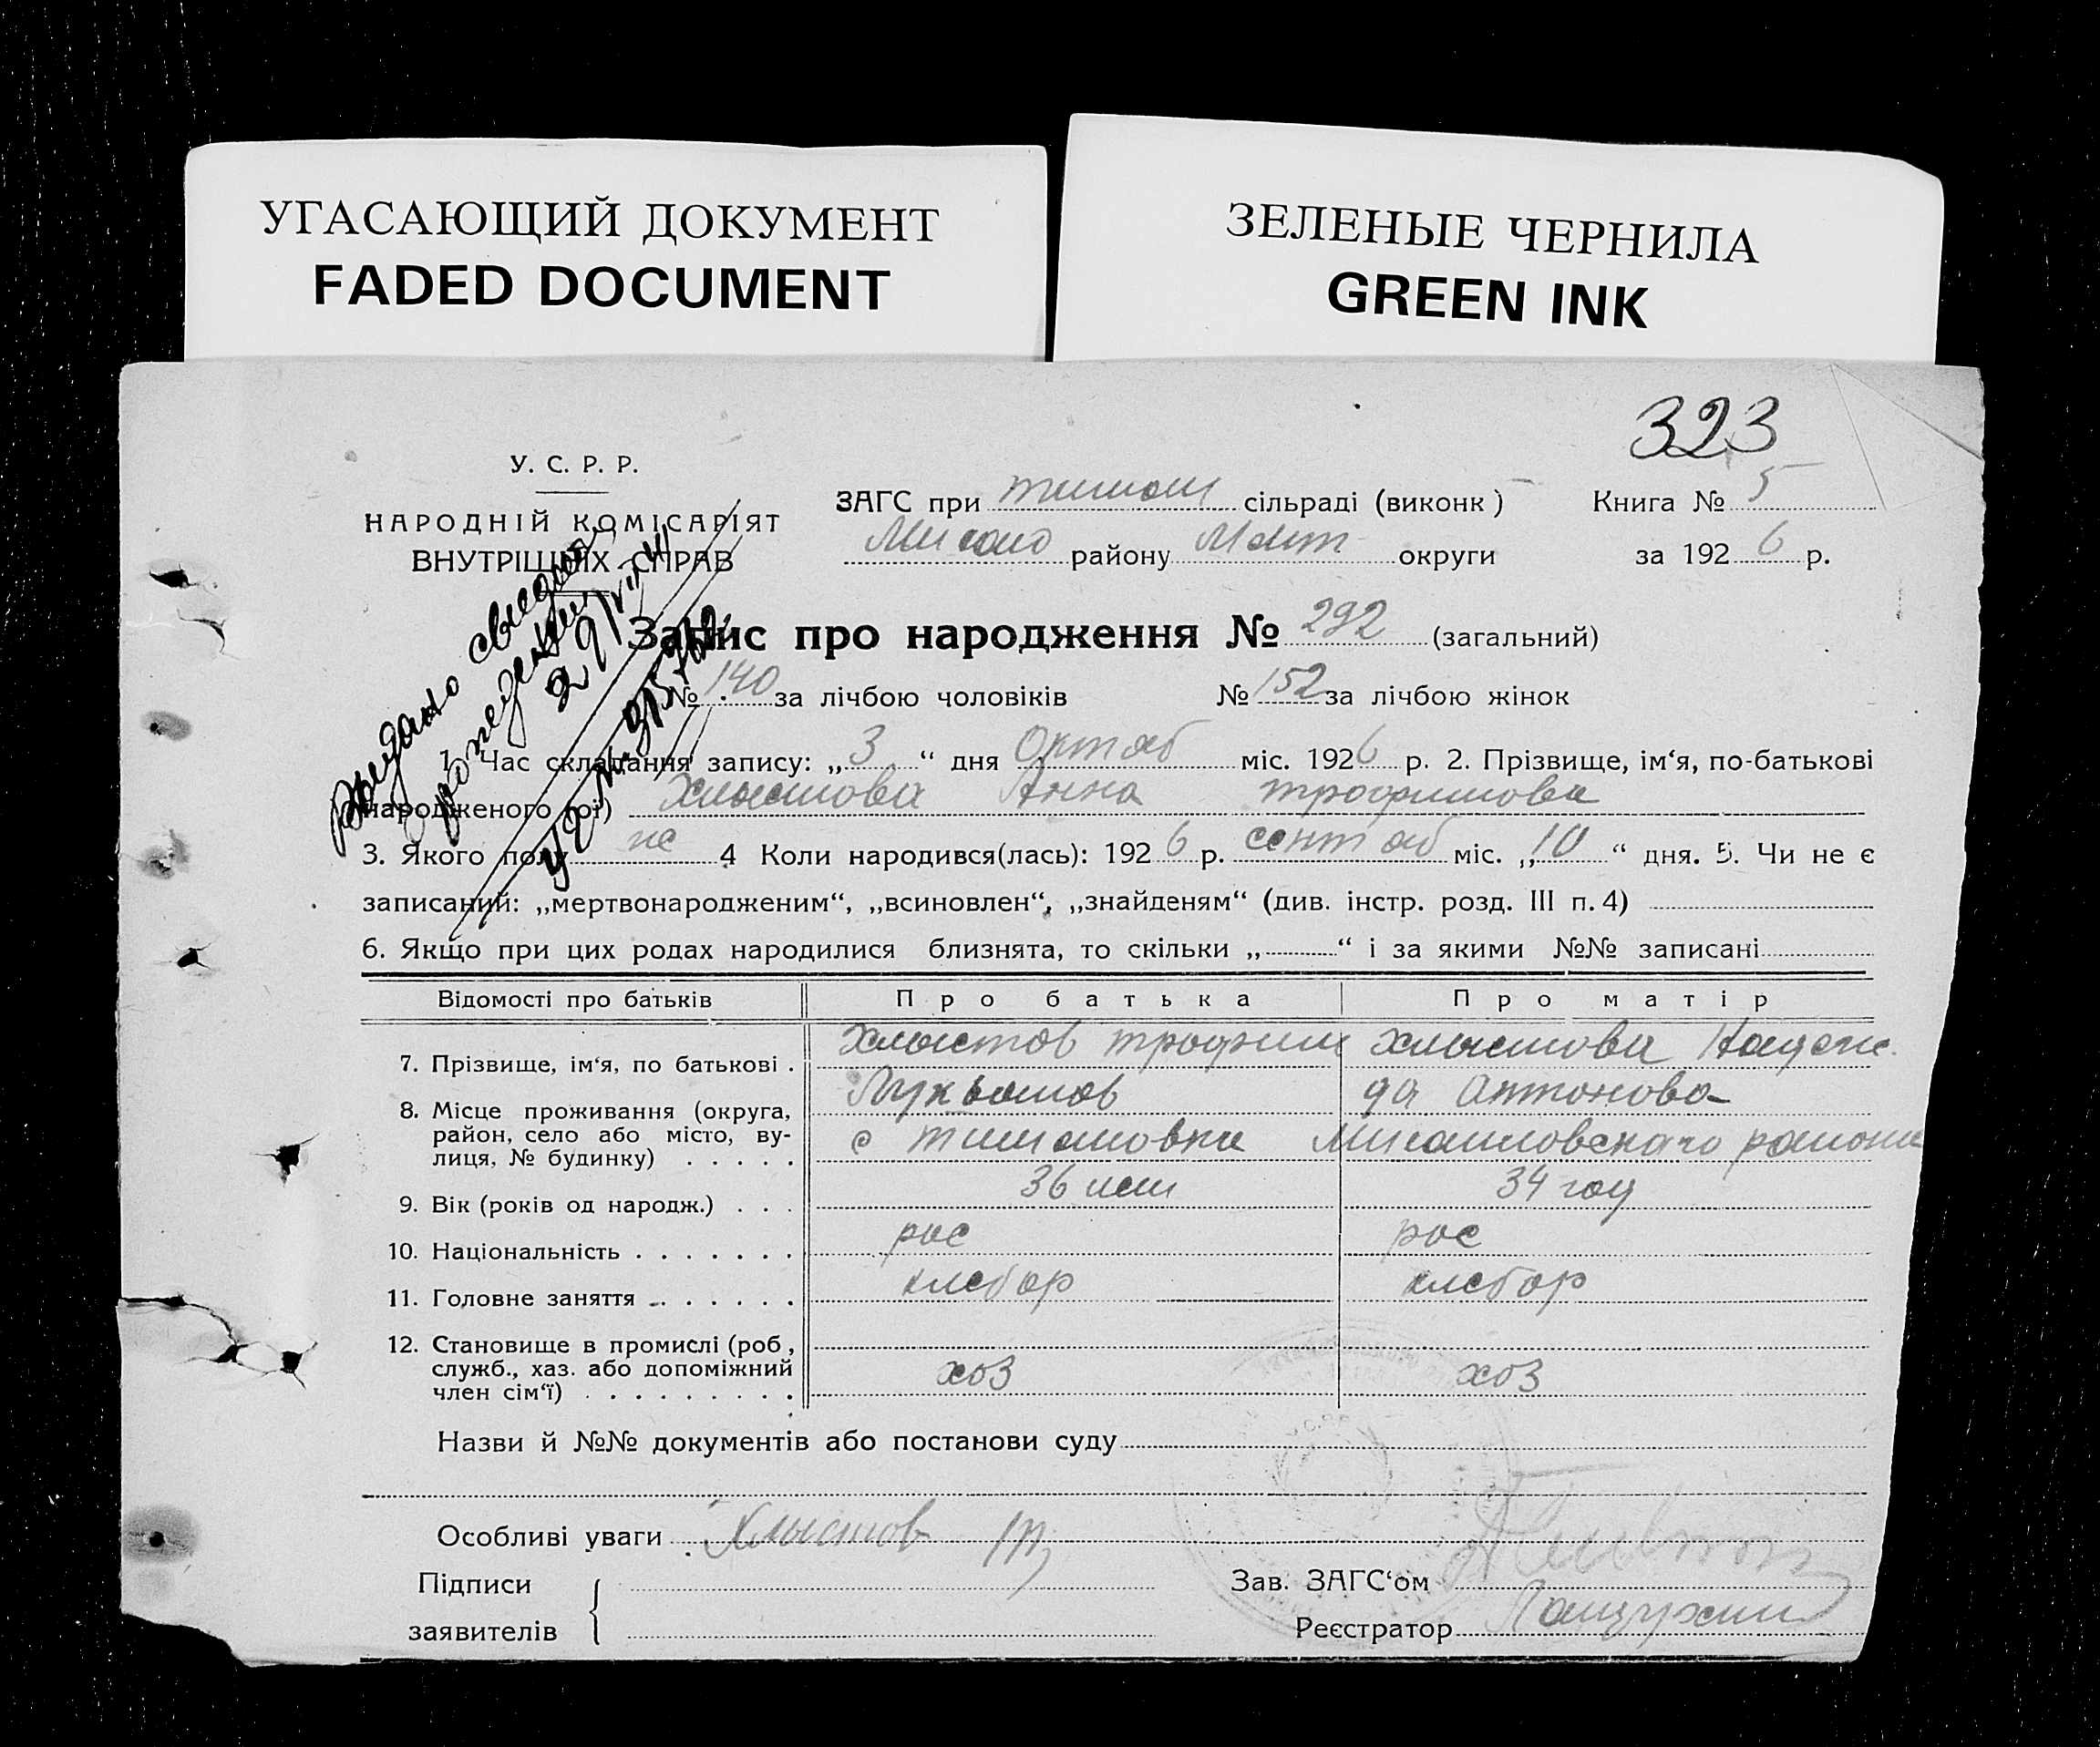 УГАСАЮЩИЙ ДОКУМЕНТ
FADED DOCUMENT
ЗЕЛЕНЫЕ ЧЕРНИЛА
GREEN INK
323
У. С. Р. Р.
НАРОДНІЙ КОМІСАРІЯТ
ВНУТРІШНІХ СПРАВ
ЗАГС при тимош сільраді (виконк)
Книга № 5
Михайло району Меит округи
за 1926 р.
Видано свидет
о рождении
Запис про народження № 292 (загальний)
№ 140 за лічбою чоловіків № 152 за лічбою жінок
1. Час складання запису: „3“ дня Октяб міс. 1926 р. 2. Прізвище, ім‘я, по-батькові
народженого (ої) Хлыстова Анна трофимова
3. Якого полу же 4 Коли народився(лась): 1926 р. сентяб міс. „10“ дня. 5. Чи не є
записаний: „мертвонародженим“, „всиновлен“, „знайденям“ (див. інстр. розд. III п. 4)
6. Якщо при цих родах народилися близнята, то скільки „ “ і за якими №№ записані
Відомості про батьків Про батька Про матір
7. Прізвище, ім‘я, по батькові . Хлыстов трофим Хлыстова Надеж
Лукьянов да Антонова
8. Місце проживання (округа, район, село або місто, ву-
лиця, № будинку) с тимошовка Михайловскаго района
9. Вік (років од народж.) 36 лет 34 год
10. Національність рос рос
11. Головне заняття хлебор хлебор
12. Становище в промислі (роб, служб., хаз. або допоміжний
член сім‘ї) хоз хоз
Назви й №№ документів або постанови суду
Особливі уваги Хлыстов Т
Підписи
заявителів
Зав. ЗАГС‘ом
Реєстратор